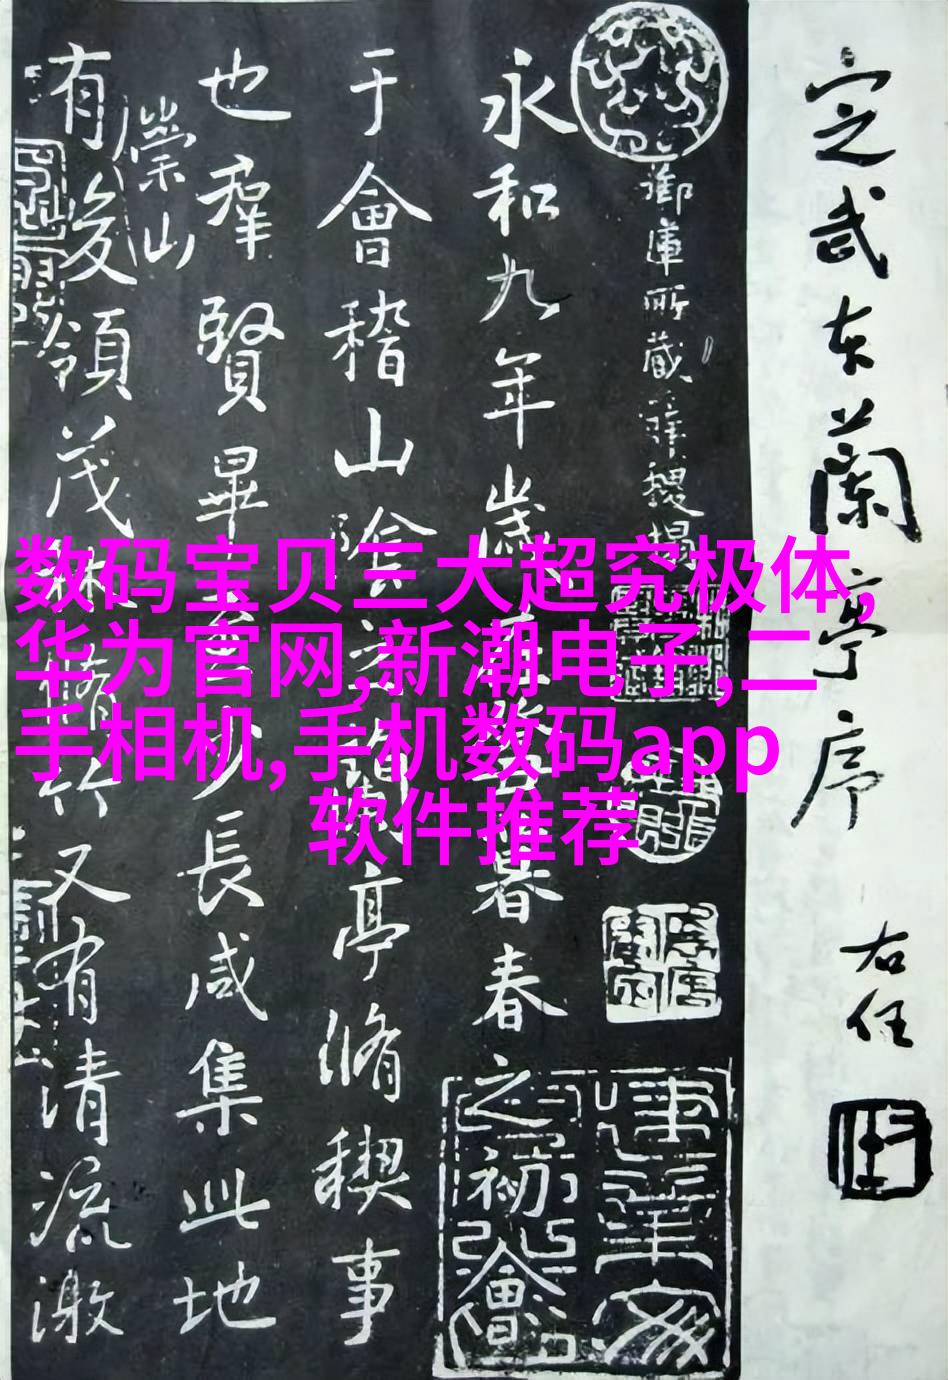 定武本蘭亭序
右任
御庫所藏
永和九年歲在癸丑暮春之初會
于會稽山陰之蘭亭脩禊事
也羣賢畢至少長咸集此地
崇山
有峻領茂林脩竹又有清流激
数码宝贝三大超究极体,
华为官网,新潮电子,二
手相机,手机数码app
软件推荐